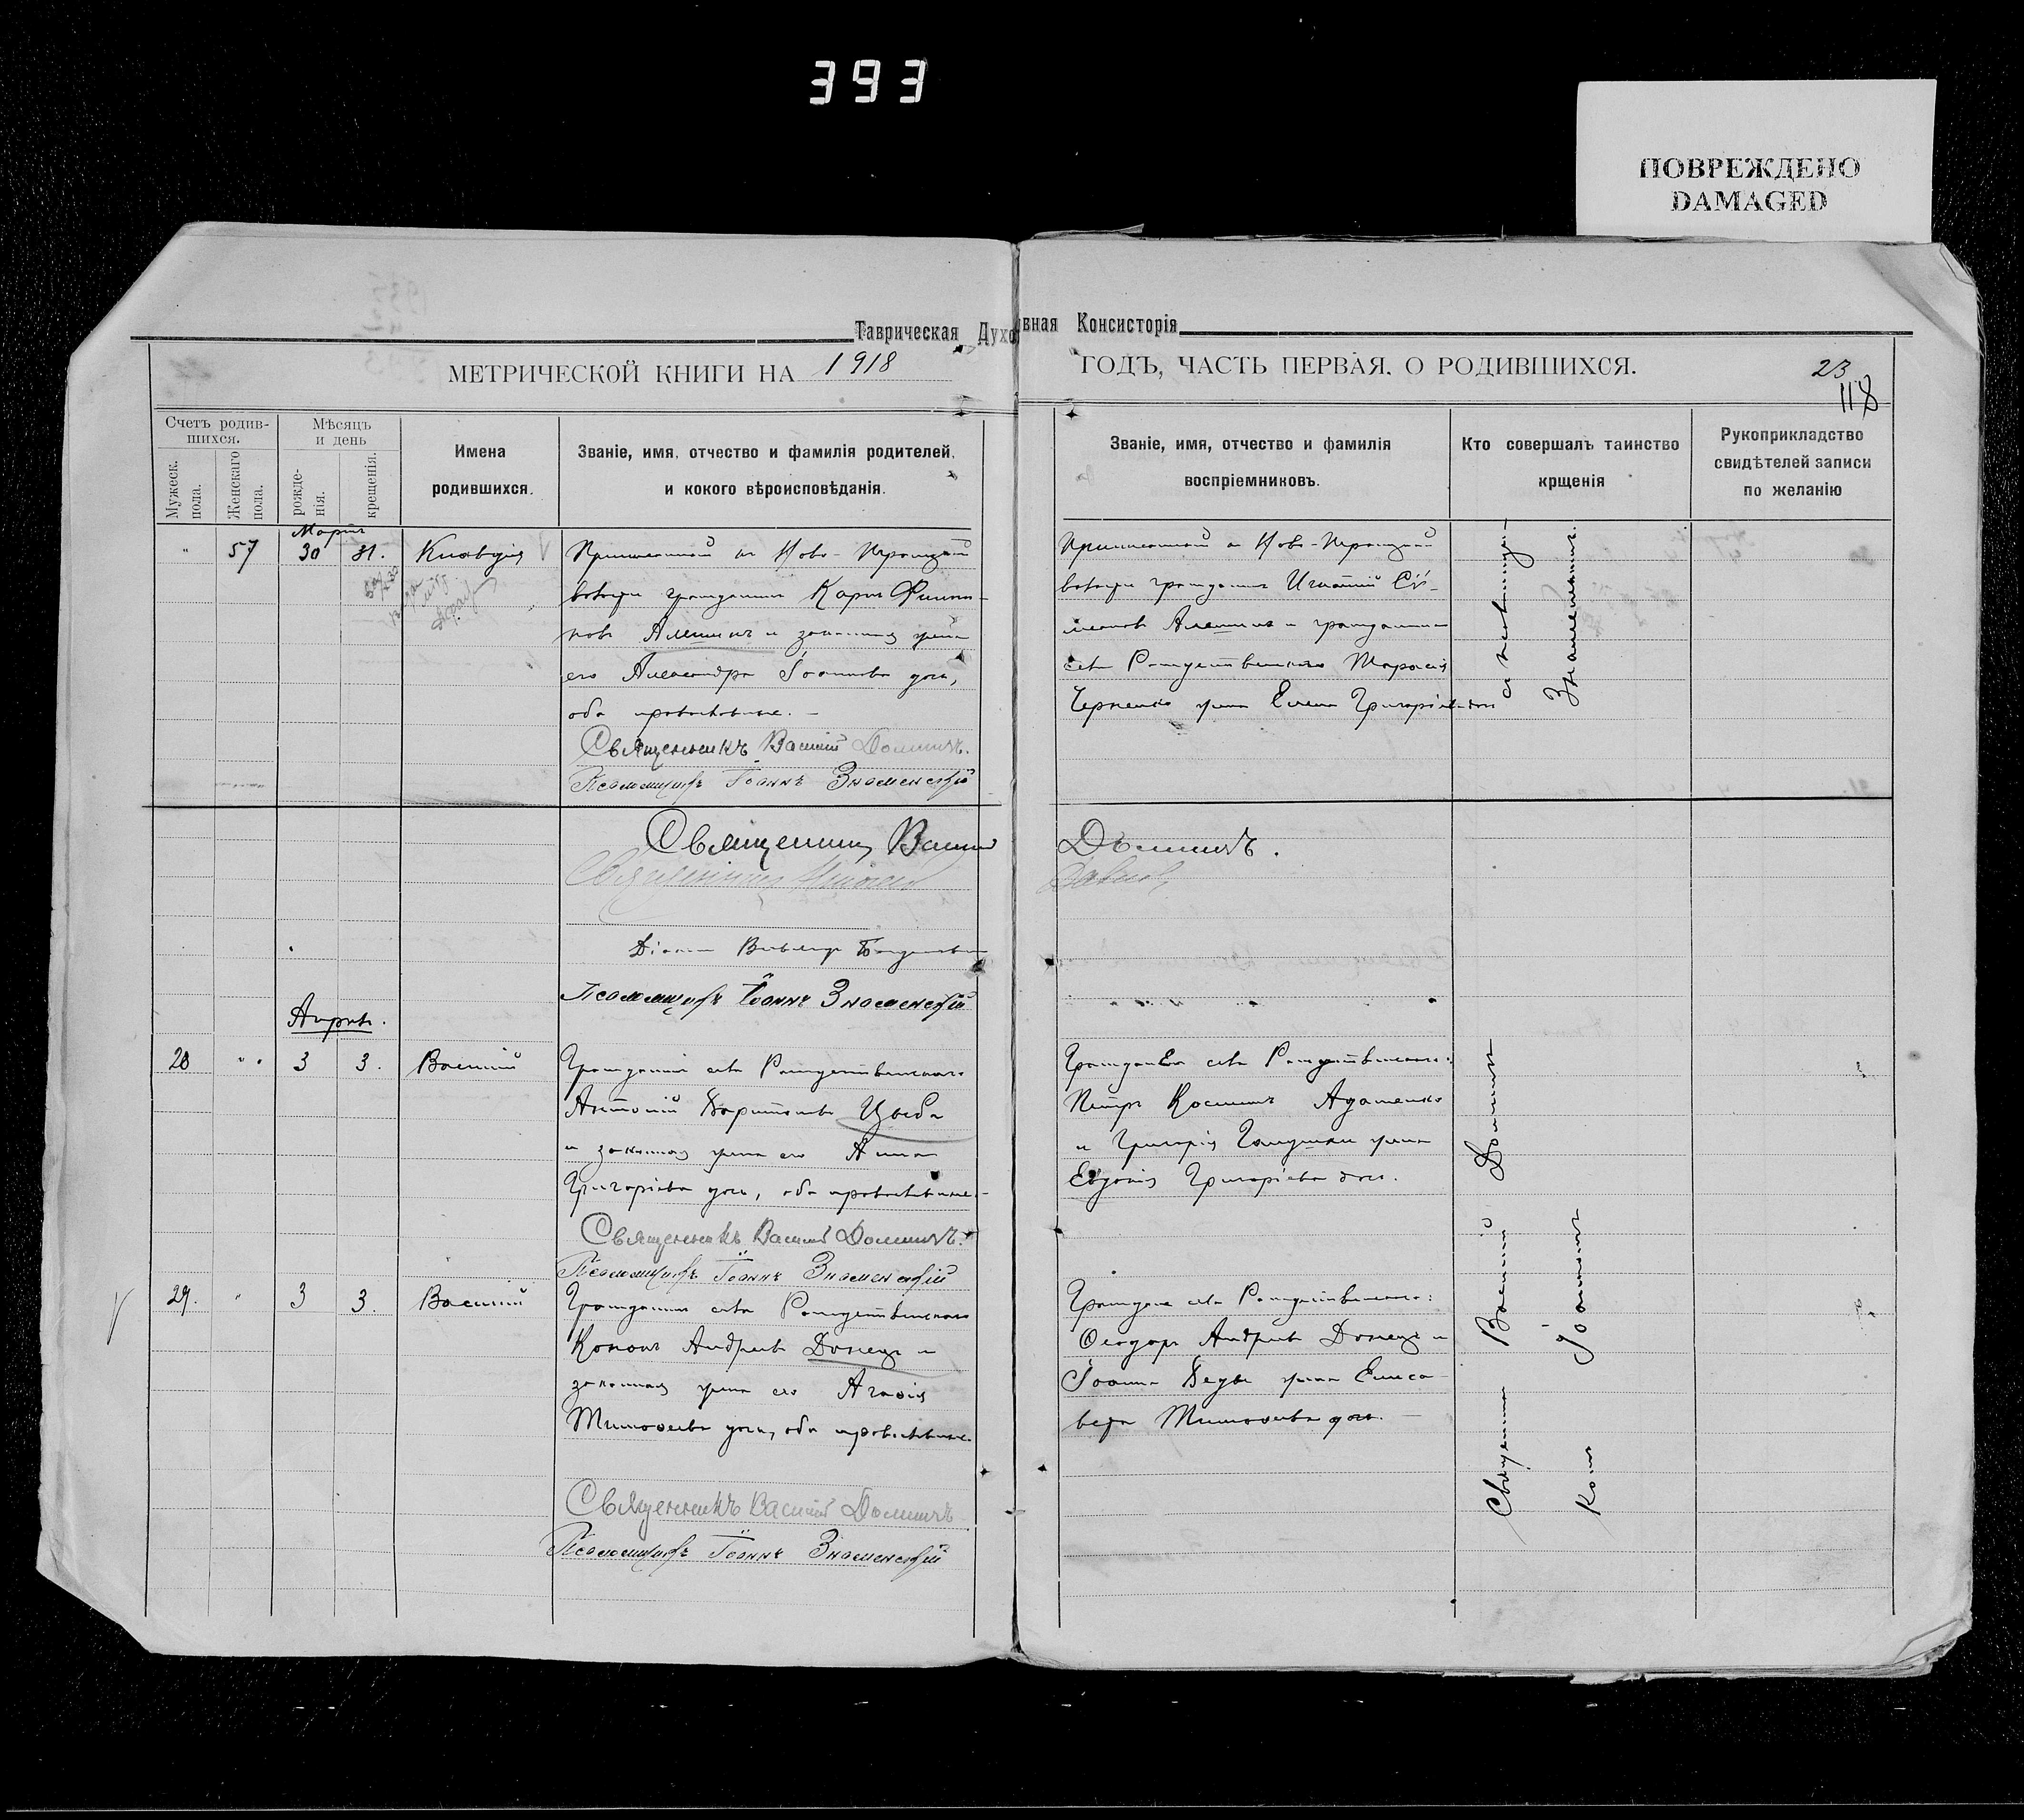 393
ПОВРЕЖДЕНО
DAMAGED
Таврическая Духовная Консисторія
МЕТРИЧЕСКОЙ КНИГИ НА 1918 ГОДЪ, ЧАСТЬ ПЕРВАЯ. О РОДИВШИХСЯ.
23
118
Счетъ родив-
шихся.
Мужеск.
пола.
Женскаго
пола.
Мѣсяцъ
и день
рожде-
нія.
крещенія.
Имена
родившихся.
Званіе, имя, отчество и фамилія родителей,
и кокого вѣроисповѣданія.
Званіе, имя, отчество и фамилія
воспріемниковъ.
Кто совершалъ таинство
крщенія
Рукоприкладство
свидѣтелей записи
по желанію
Мартъ
57 30 31. Клавдія
Ново-Троицкой
волости гражданинъ Карпъ Филип-
повъ Алешинъ и законная жена
его Александра Іоаннова дочь,
оба православные.
Священникъ Василій Доминъ.
Псаломщикъ Іоаннъ Знаменскій
Ново-Троицкой
волости гражданинъ Игнатій
Алешинъ и гражданина
села Рождественскаго Тарасія
Черненко жена Елена Григоріева доч
Знаменскимъ.
Священникъ Василій Доминъ.
Священникъ
Діаконъ
Псаломщикъ Іоаннъ Знаменскій
Апрѣль.
28 3 3. Василій
Гражданинъ села Рождественскаго
Антоній Харитоновъ Цыба
и законная жена его Анна
Григоріева дочь, оба православные.
Священникъ Василій Доминъ.
Псаломщикъ Іоаннъ Знаменскій
Граждане села Рождественскаго:
Петръ Косминъ Адаменко
и Григорія Галушки жена
Евдокія Григоріева доч.
29. 3 3. Василій
Гражданинъ села Рождественскаго
Кононъ Андреевъ Донецъ и
законная жена его Агафія
Тимофеева дочь, оба православные.
Священникъ Василій Доминъ
Псаломщикъ Іоаннъ Знаменскій
Граждане села Рождественскаго:
Ѳеодоръ Андреевъ Донецъ и
Іоанна Беды жена Елиса-
вета Тимофеева доч.
Священник Василий Доминъ
Іоанномъ